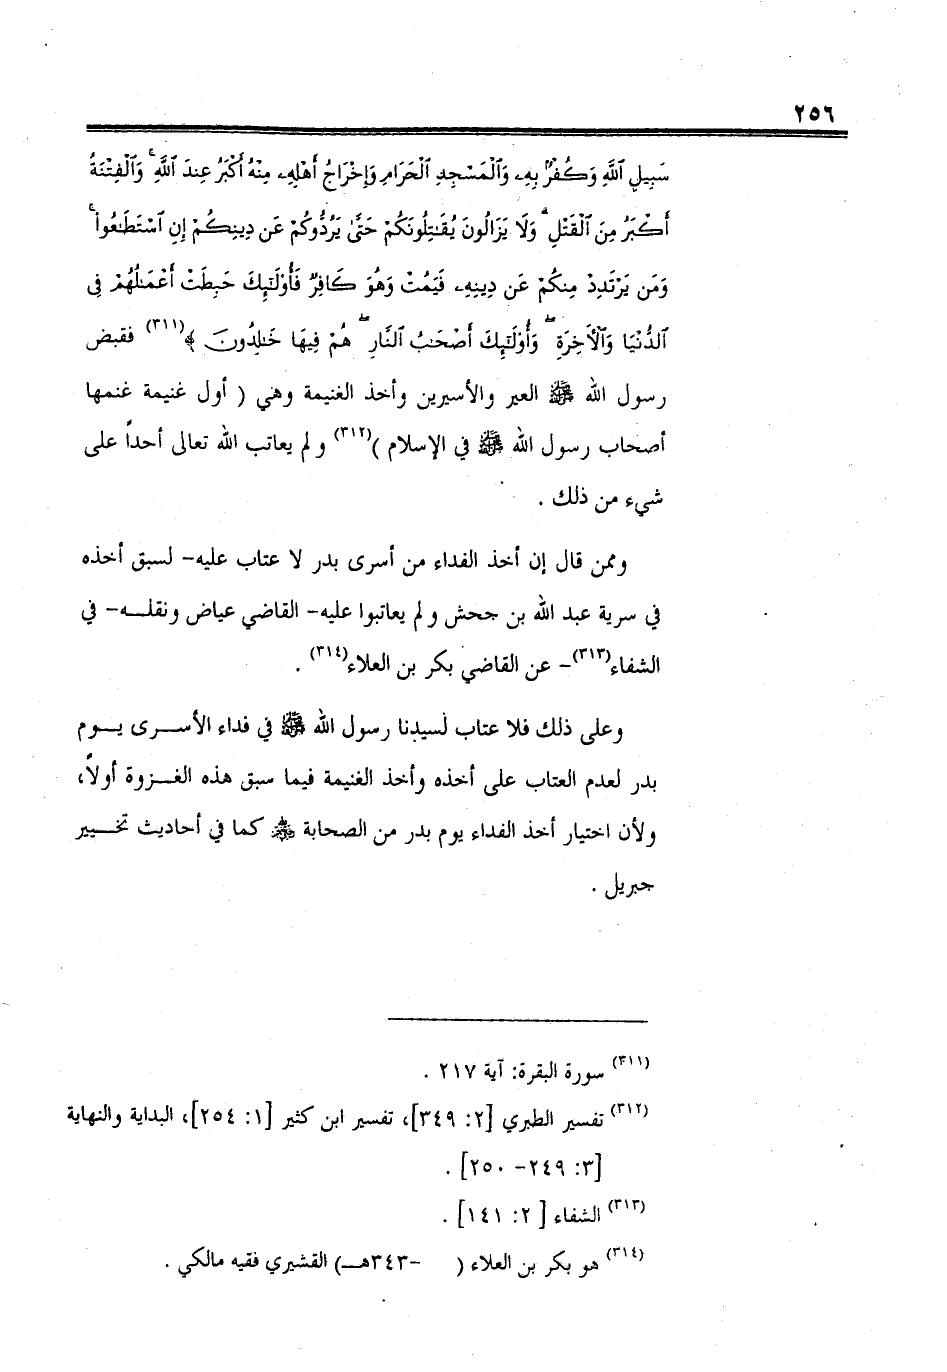 ٢٥٦
سَبِيلِ ٱللَّهِ وَكُفْرٌۢ بِهِۦ وَٱلْمَسْجِدِ ٱلْحَرَامِ وَإِخْرَاجُ أَهْلِهِۦ مِنْهُ أَكْبَرُ عِندَ ٱللَّهِ ۚ وَٱلْفِتْنَةُ
أَكْبَرُ مِنَ ٱلْقَتْلِ ۗ وَلَا يَزَالُونَ يُقَـٰتِلُونَكُمْ حَتَّىٰ يَرُدُّوكُمْ عَن دِينِكُمْ إِنِ ٱسْتَطَـٰعُوا۟ ۚ
وَمَن يَرْتَدِدْ مِنكُمْ عَن دِينِهِۦ فَيَمُتْ وَهُوَ كَافِرٌ فَأُو۟لَـٰٓئِكَ حَبِطَتْ أَعْمَـٰلُهُمْ فِى
ٱلدُّنْيَا وَٱلْـَٔاخِرَةِ ۖ وَأُو۟لَـٰٓئِكَ أَصْحَـٰبُ ٱلنَّارِ ۖ هُمْ فِيهَا خَـٰلِدُونَ ﴾(٣١١) فقبض
رسول الله ﷺ العير والأسيرين وأخذ الغنيمة وهي ( أول غنيمة غنمها
أصحاب رسول الله ﷺ في الإسلام )(٣١٢) و لم يعاتب الله تعالى أحداً على
شيء من ذلك .
وممن قال إن أخذ الفداء من أسرى بدر لا عتاب عليه- لسبق أخذه
في سرية عبد الله بن جحش و لم يعاتبوا عليه- القاضي عياض ونقلـــه- في
الشفاء(٣١٣)- عن القاضي بكر بن العلاء(٣١٤) .
وعلى ذلك فلا عتاب لسيدنا رسول الله ﷺ في فداء الأســـرى يـــوم
بدر لعدم العتاب على أخذه وأخذ الغنيمة فيما سبق هذه الغـــزوة أولاً،
ولأن اختيار أخذ الفداء يوم بدر من الصحابة ﷺ كما في أحاديث تخـــيير
جبريل .
(٣١١) سورة البقرة: آية ٢١٧ .
(٣١٢) تفسير الطبري [٢: ٣٤٩]، تفسير ابن كثير [١: ٢٥٤]، البداية والنهاية
[٣: ٢٤٩- ٢٥٠] .
(٣١٣) الشفاء [ ٢: ١٤١] .
(٣١٤) هو بكر بن العلاء ( -٣٤٣هـــ) القشيري فقيه مالكي .